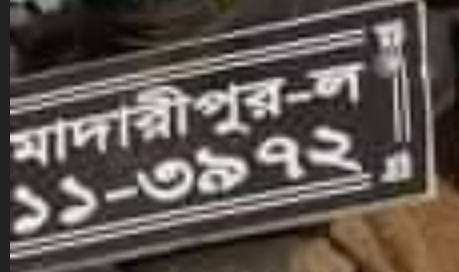 মাদারীপুর-ল
১১-৩৯৭২